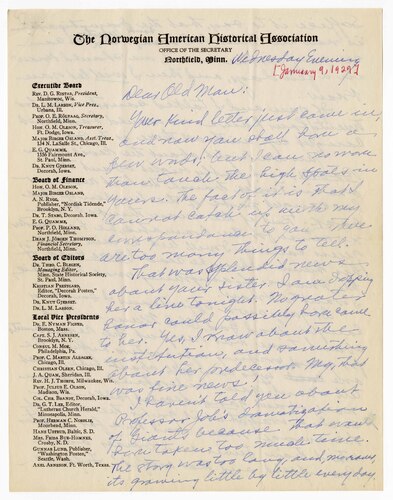 The Norwegian American Historical Association
OFFICE OF THE SECRETARY
Northfield, Minn. Wednesday Evening
[January 9, 1929]
Executive Board
REV. D. G. RISTAD, President,
Manitowoc, Wis.
DR. L. M. LARSON, Vice Pres.,
Urbana, Ill.
PROF. O. E. RÖLVAAG, Secretary,
Northfield, Minn.
HON. O. M. OLESON, Treasurer,
Ft. Dodge, Iowa.
MAJOR BIRGER OSLAND, Asst. Treas.,
134 N. LaSalle St., Chicago, Ill.
E. G. QUAMME,
St. Paul, Minn.
DR. KNUT GJERSET,
Decorah, Iowa.
Board of Finance
HON. O. M. OLESON,
MAJOR BIRGER OSLAND,
A. N. RYGG,
Publisher, "Nordisk Tidende,"
Brooklyn, N. Y.
Decorah, Iowa.
E. G. QUAMME,
PROF. P. O. HOLLAND,
Northfield, Minn.
DEAN J. JÖRGEN THOMPSON,
Financial Secretary,
Northfield, Minn.
Board of Editors
DR. THEO. C. BLEGEN,
Managing Editor,
Minn. State Historical Society,
St. Paul, Minn.
KRISTIAN PRESTGARD,
Editor, "Decorah Posten,"
Decorah, Iowa.
DR. KNUT GJERSET
DR. L. M. LARSON.
Local Vice Presidents
Boston, Mass.
CAPT. S. J. ARNESEN,
Brooklyn, N. Y.
Philadelphia, Pa.
Chicago, Ill.
CHRISTIAN OLSEN, Chicago, Ill.
J. A. QUAN, Sheridan, Ill.
REV. H. J. THORPE, Milwaukee, Wis.
PROF. JULIUS E. OLSON,
Madison, Wis.
COL. CHR. BRANDT, Decorah, Iowa.
DR. G. T. LEE, Editor,
"Lutheran Church Herald,"
Minneapolis, Minn.
Moorhead, Minn.
Crosby, N. D.
GUNNAR LUND, Publisher,
"Washington Posten,"
Seattle, Wash.
Ft. Worth, Texas.
Dear Old Man:
Your kind letter just came in,
and now you shall have a
few words, but I can no more
than touch the high spots in
yours. The fact of it is that I
cannot catch up with my
correspondence to you. There
are too many things to tell.
That was splendid news
about your sister. I am dropping
her a line tonight. No greater
honor could possibly have come
to her. Yes, I know about the
institution, and something
about her predecessor. My, that
was fine news!
I haven't told you about
Professor Job's dramatization
of Giants because that would
have taken too much time.
The story was too long, and moreover
its growing little by little every day.